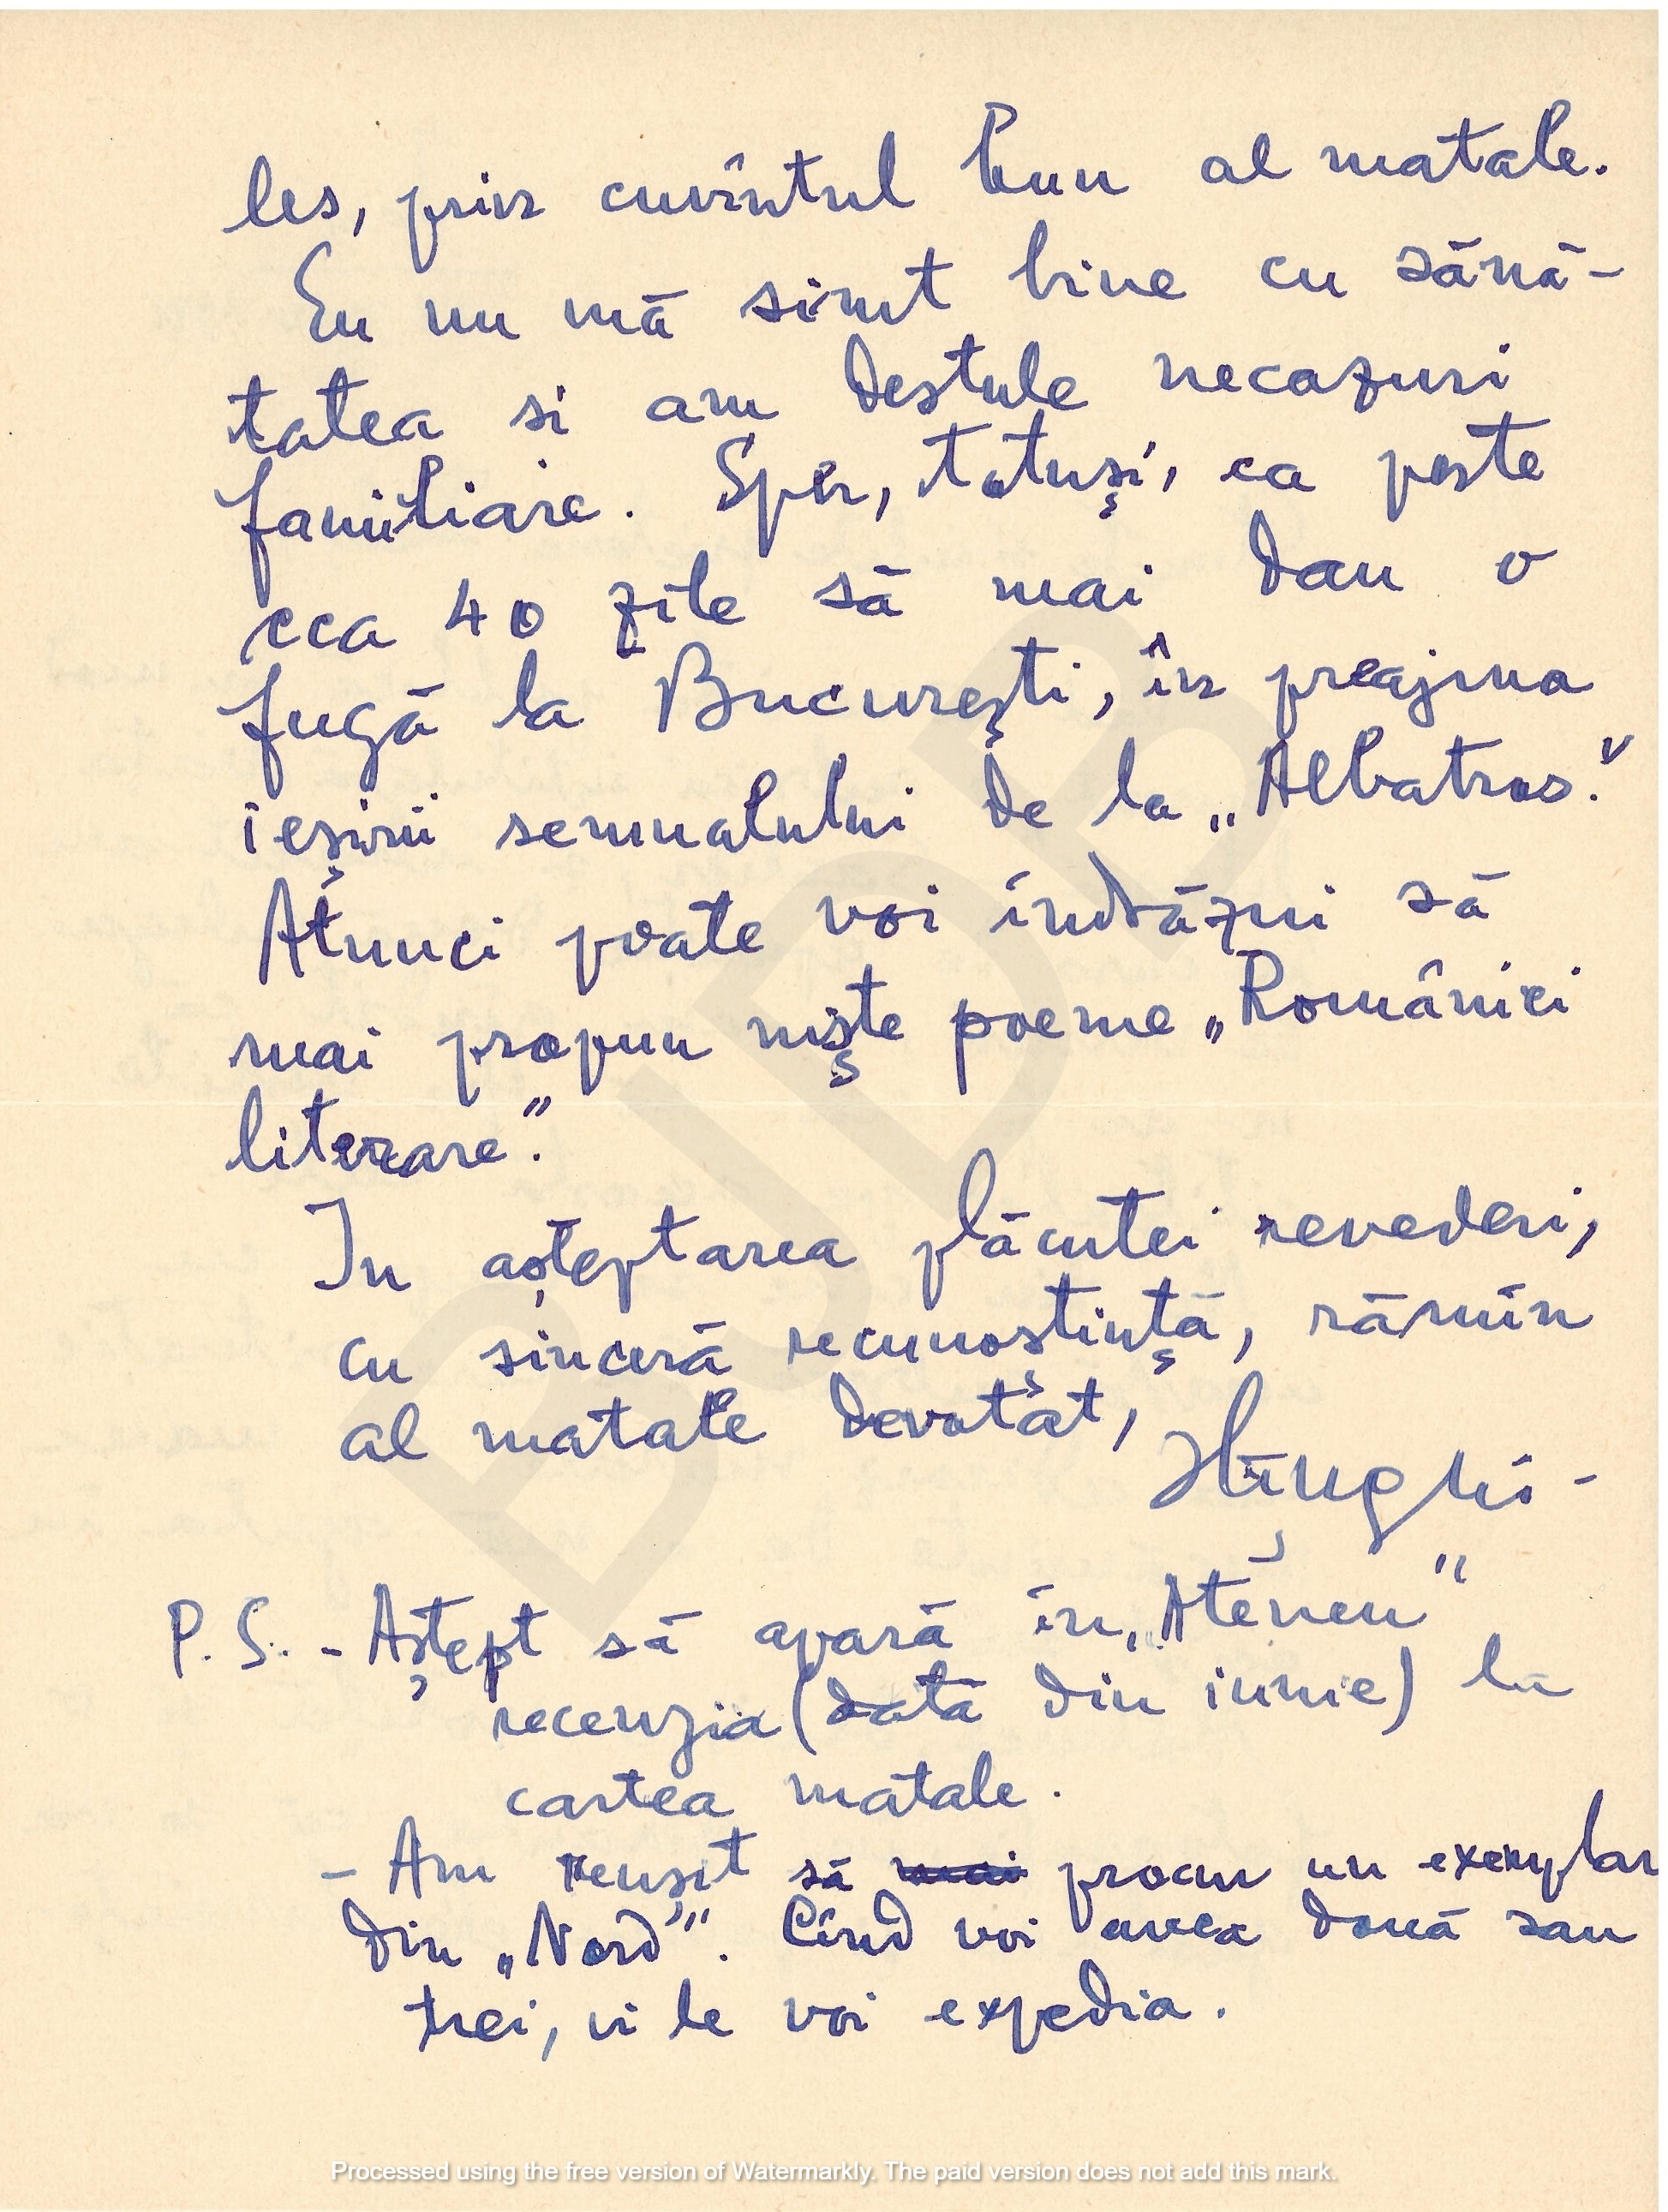 les, prin cuvîntul bun al matale.
Eu nu mă simt bine cu sănă-
tatea si am destule necazuri
familiare. Sper, totuşi, ca peste
cca 40 zile să mai dau o
fugă la Bucureşti, în preajma
ieşirii semnalului de la „Albatros."
Atunci poate voi îndrăzni să
mai propun nişte poeme „României
literare".
In aşteptarea plăcutei revederi,
cu sinceră recunoştinţă, rămîn
al matale devotat,
P.S. - Aştept să apară în „Ateneu"
recenzia (dată din iunie) la
cartea matale.
- Am reuşit să mai procur un exemplar
din „Nord". Cînd voi avea două sau
trei, vi le voi expedia.
BJDB
Processed using the free version of Watermarkly. The paid version does not add this mark.